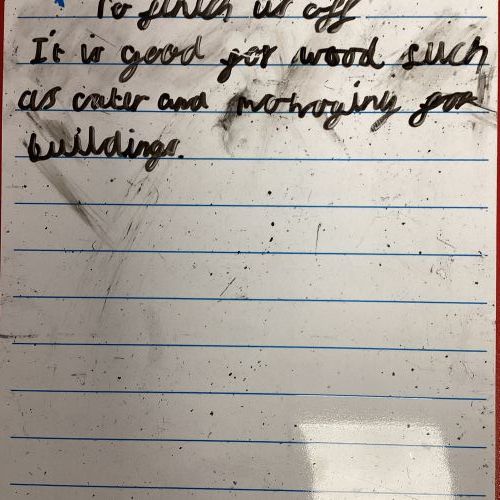 To finish us off
It is good for wood such
as crater and mohoging for
buildings.